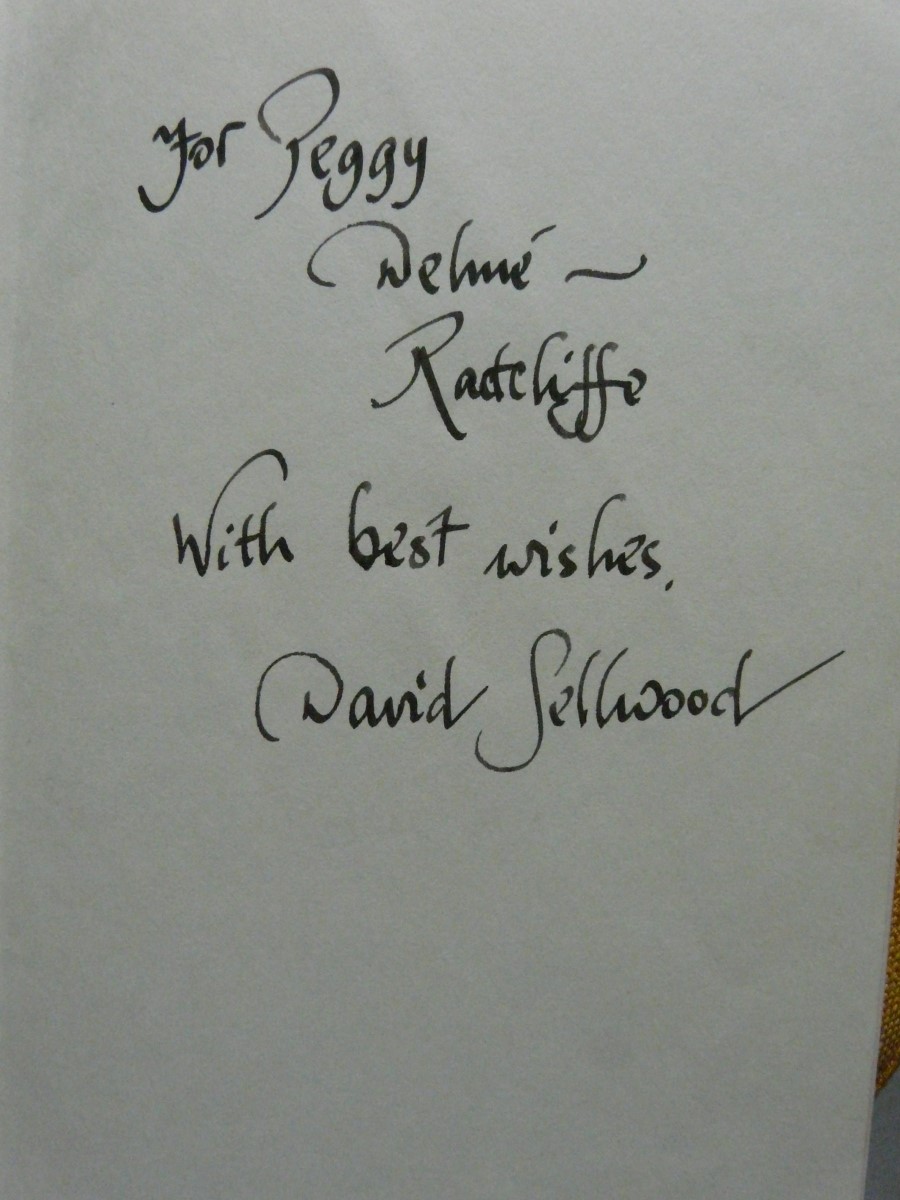 For Peggy
Delmé ~
Radcliffe
With best wishes,
David Sellwood